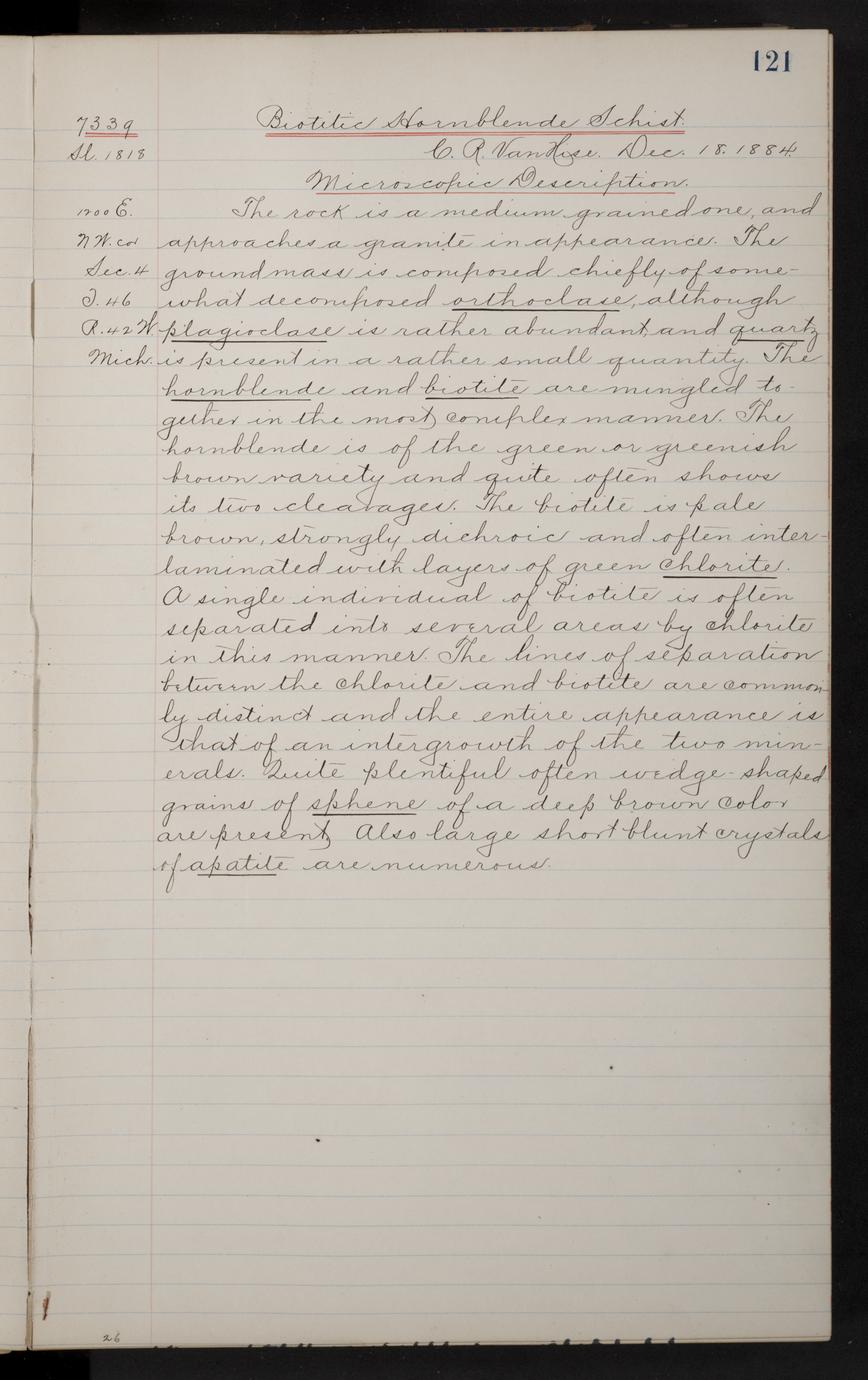 121
7339 Biotitic Hornblende Schist.
Sl. 1818 C. R. VanHise. Dec. 18. 1884.
Microscopic Description.
1200 E. The rock is a medium grained one, and
N W. cor approaches a granite in appearance. The
Sec. 4 groundmass is composed chiefly of some-
T. 46 what decomposed orthoclase, although
R. 42 W plagioclase is rather abundant, and quartz
Mich. is present in a rather small quantity. The
hornblende and biotite are mingled to-
gether in the most complex manner. The
hornblende is of the green or greenish
brown variety and quite often shows
its two cleavages. The biotite is pale
brown, strongly dichroic and often inter-
laminated with layers of green chlorite.
A single individual of biotite is often
separated into several areas by chlorite
in this manner. The lines of separation
between the chlorite and biotite are common-
ly distinct and the entire appearance is
that of an intergrowth of the two min-
erals. Quite plentiful often wedge-shaped
grains of sphene of a deep brown color
are present, Also large short blunt crystals
of apatite are numerous.
26